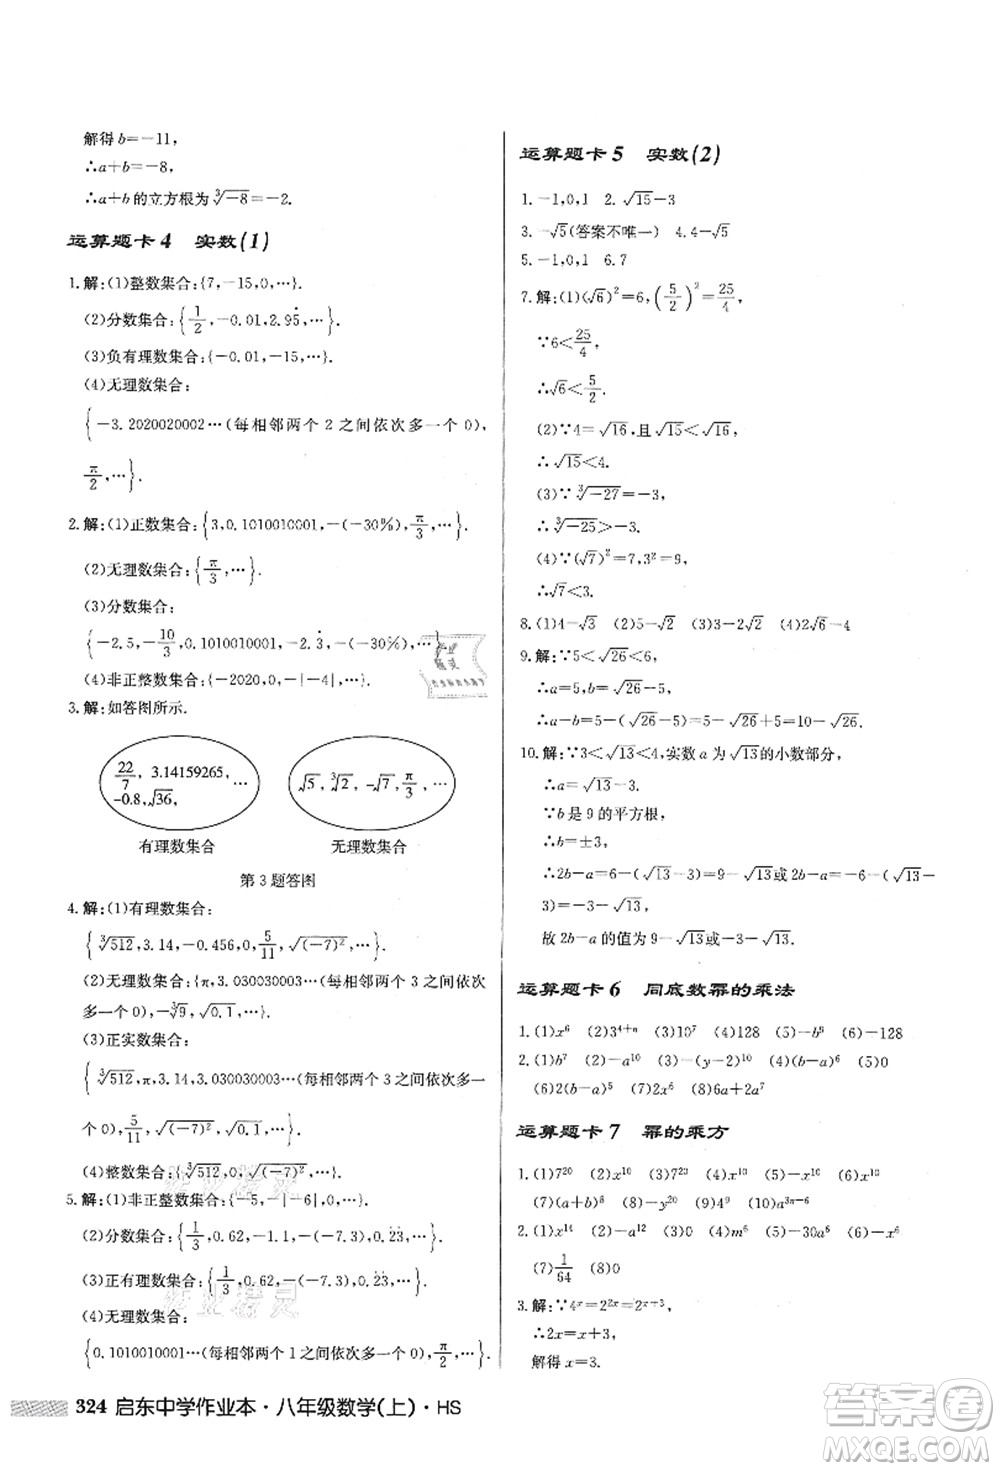 解得b=-11,
∴a+b=-8,
∴a+b的立方根为∛-8=-2.
运算题卡4 实数(1)
1.解:(1)整数集合:{7,-15,0,…}.
(2)分数集合:{1/2,-0.01,2.95̇,…}.
(3)负有理数集合:{-0.01,-15,…}.
(4)无理数集合:
{-3.2020020002…(每相邻两个2之间依次多一个0),
π/2,…}.
2.解:(1)正数集合:{3,0.1010010001,-(-30%),π/3,…}.
(2)无理数集合:{π/3,…}.
(3)分数集合:
{-2.5,-10/3,0.1010010001,-2.3̇,-(-30%),…}.
(4)非正整数集合:{-2020,0,-|-4|,…}.
3.解:如答图所示.
22/7, 3.14159265, …
-0.8,√36,
√5, ∛2, -√7, π/3, …
有理数集合 无理数集合
第3题答图
4.解:(1)有理数集合:
{∛512,3.14,-0.456,0,5/11,√(-7)²,…}.
(2)无理数集合:{π,3.030030003…(每相邻两个3之间依次多一个0),-∛9,√0.1,…}.
(3)正实数集合:
{∛512,π,3.14,3.030030003…(每相邻两个3之间依次多一
个0),5/11,√(-7)²,√0.1,…}.
(4)整数集合:{∛512,0,√(-7)²,…}.
5.解:(1)非正整数集合:{-5,-|-6|,0,…}.
(2)分数集合:{1/3,0.62,-(-7.3),0.2̇3̇,…}.
(3)正有理数集合:{1/3,0.62,-(-7.3),0.2̇3̇,…}.
(4)无理数集合:
{0.1010010001…(每相邻两个1之间依次多一个0),π/2,…}.
324 启东中学作业本·八年级数学(上)·HS
运算题卡5 实数(2)
1.-1,0,1 2.√15-3
3.-√5(答案不唯一) 4.4-√5
5.-1,0,1 6.7
7.解:(1)(√6)²=6,(5/2)²=25/4,
∵6<25/4,
∴√6<5/2.
(2)∵4=√16,且√15<√16,
∴√15<4.
(3)∵∛-27=-3,
∴∛-25>-3.
(4)∵(√7)²=7,3²=9,
∴√7<3.
8.(1)4-√3 (2)√3-√2 (3)3-2√2 (4)2√6-4
9.解:∵5<√26<6,
∴a=5,b=√26-5,
∴a-b=5-(√26-5)=10-√26.
10.解:∵3<√13<4,实数a为√13的小数部分,
∴a=√13-3.
∵b是9的平方根,
∴b=±3,
∴2b-a=6-(√13-3)=9-√13或2b-a=-6-(√13-3)=-3-√13,
故2b-a的值为9-√13或-3-√13.
运算题卡6 同底数幂的乘法
1.(1)x⁶ (2)3⁴⁺ⁿ (3)10⁷ (4)128 (5)-b⁹ (6)-128
2.(1)b⁷ (2)-a¹⁰ (3)-(y-2)¹⁰ (4)(b-a)⁶ (5)0
(6)2(b-a)⁵ (7)2x⁶ (8)2a¹⁰+2a⁷
运算题卡7 幂的乘方
1.(1)7²⁰ (2)x⁶ (3)7²⁰ (4)x¹⁰ (5)-x⁶ (6)-x⁶
(7)(a+b)⁶ (8)-x¹⁰ (9)a³ⁿ⁻⁶
2.(1)x¹⁴ (2)-a¹² (3)0 (4)m⁶ (5)x¹⁰ (6)x⁵
(7)1/64 (8)0
3.解:∵4ˣ=2²ˣ=2ˣ⁺³,
∴2x=x+3,
解得x=3.
答案圈
MXQE.COM